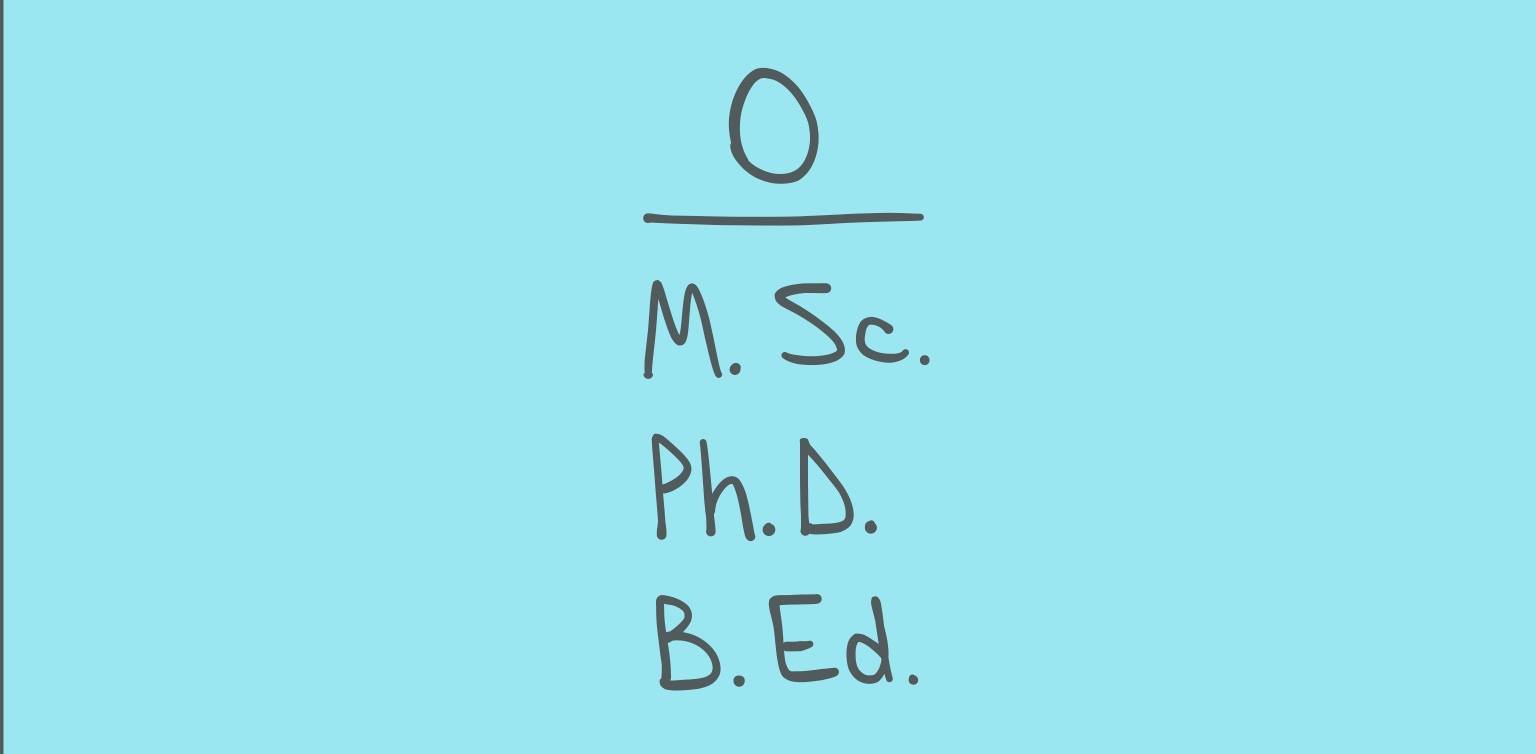 0
M. Sc.
Ph. D.
B. Ed.